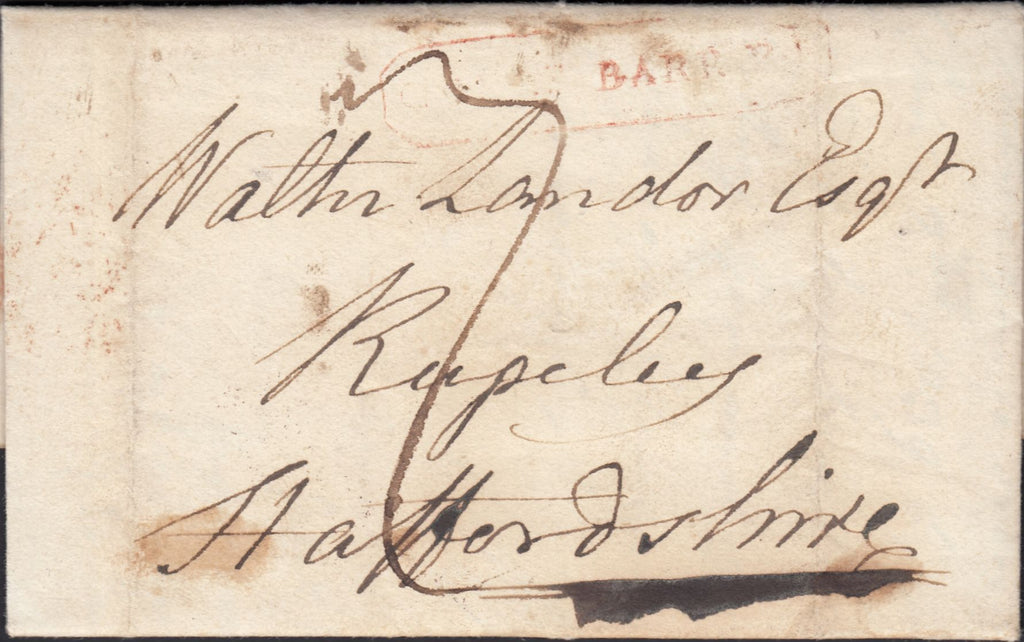 Walter Landor Esqr
Rugeley
Staffordshire
7